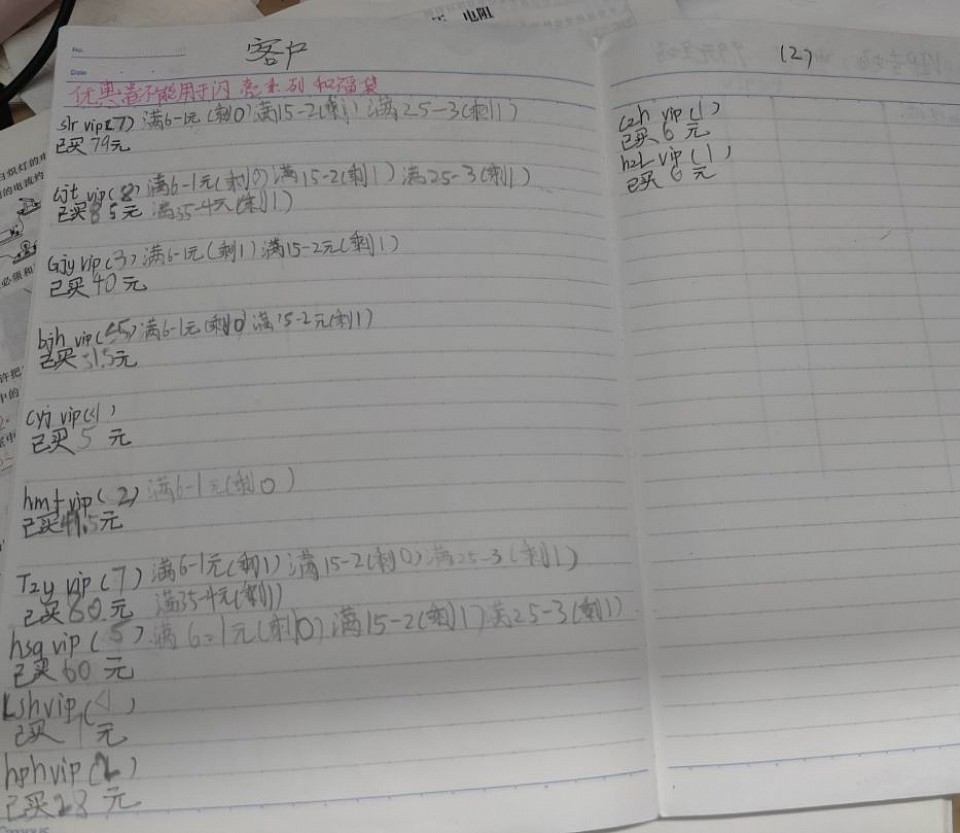 电阻
No.
Date
客户
优惠卷不能用于闪亮系列和福袋
slr vip(7) 满6-1元(剩0)满15-2(剩1)满25-3(剩1)
已买79元
cjt vip(8)满6-1元(剩0)满15-2(剩1)满25-3(剩1)
已买85元 满35-4元(剩1)
Gjy vip(3)满6-1元(剩1)满15-2元(剩1)
已买40元
bjh vip(5)满6-1元(剩0)满15-2元(剩1)
已买31.5元
cyj vip(1)
已买5元
hmf vip(2)满6-1元(剩0)
已买41.5元
Tzy vip(7)满6-1元(剩1)满15-2(剩0)满25-3(剩1)
已买60.元 满35-4元(剩1)
hsq vip(5)满6-1元(剩0)满15-2(剩1)满25-3(剩1)
已买60元
Lshvip(1)
已买1元
hphvip(2)
已买23元
(2)
czh vip(1)
已买6元
hzl vip(1)
已买6元